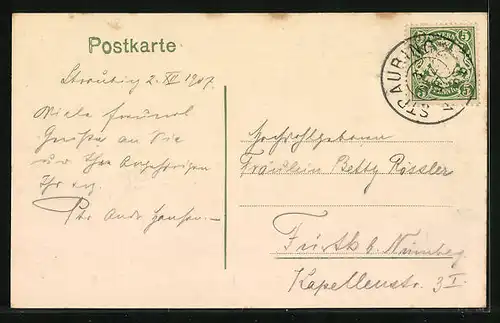 Postkarte
BAYERN
5 5
PFENNIG
STRAUBING
Straubing 2. XII 1907.
Viele freundl
Grüße an Sie
u. Ihre Angehörigen
Ihr erg.
Hochwohlgeboren
Fräulein Betty Rössler
Fürth b. Nürnberg
Kapellenstr. 3 I.